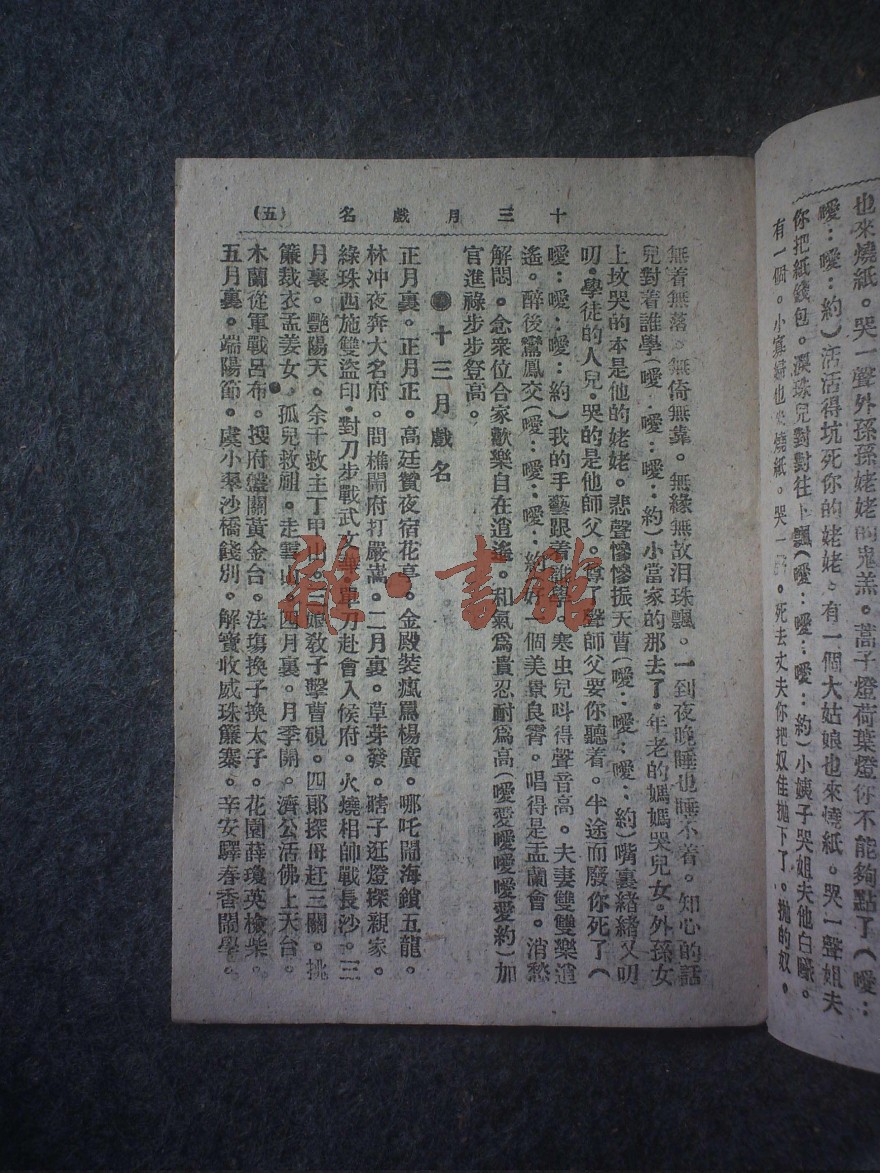 也來燒紙。哭一聲外孫孫姥姥的鬼羔。蒿子燈荷葉燈你不能夠點了(噯:
噯:噯:約)活活得坑死你的姥姥。有一個大姑娘也來燒紙。哭一聲姐夫
你把紙錢包。淚珠兒對對往上飄(噯:噯:噯:約)小姨子哭姐夫他白
有一個。小寡婦也來燒紙。哭一。死去丈夫你把奴佳拋下了。拋的奴。
十三月戲名 (五)
無着無落。無倚無靠。無緣無故泪珠飄。一到夜晚睡也睡不着。知心的話
兒對着誰學(噯:噯:噯:約)小當家的那去了。年老的媽媽哭兒女。外孫女
上墳哭的本是他的姥姥。悲聲慘慘振天曹(噯:噯:噯:約)嘴裏緒緒又叨
叨。學徒的人兒。哭的是他師父。尊了聲師父要你聽着。半途而廢你死了(
噯:噯:噯:約)我的手藝跟着誰學。寒虫兒呌得聲音高。夫妻雙雙樂逍
遙。醉後鸞鳳交(噯:噯:噯:約)好一個美景良霄。唱得是盂蘭會。消愁
解悶。念衆位合家歡樂自在逍遙。和氣爲貴忍耐爲高(噯愛噯噯噯愛約)加
官進祿步步登高。
十三月戲名
正月裏。正月正。高廷贊夜宿花亭。金殿裝瘋罵楊廣。哪吒鬧海鎖五龍。
林冲夜奔大名府。問樵鬧府打嚴嵩。二月裏。草芽發。瞎子逛燈探親家。
綠珠西施雙盜印。對刀步戰武文華。單刀赴會入候府。火燒相師戰長沙。三
月裏。艷陽天。余千救主丁甲山。三娘敎子擊曹硯。四郎探母赶三關。挑
簾裁衣孟姜女。孤兒救祖。走雪山。四月裏。月季開。濟公活佛上天台。
木蘭從軍戰呂布。搜府盤關黃金台。法塲換子換太子。花園薛瓊英檢柴。
五月裏。端陽節。虞小翠沙橋餞別。解寶收威珠簾寨。辛安驛春香鬧學。
雜·書館